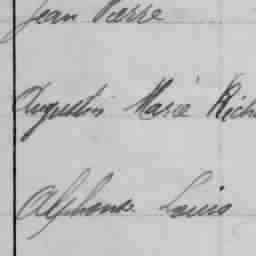 Jean Pierre
Augustin Marie Rich
Alphonse Louis